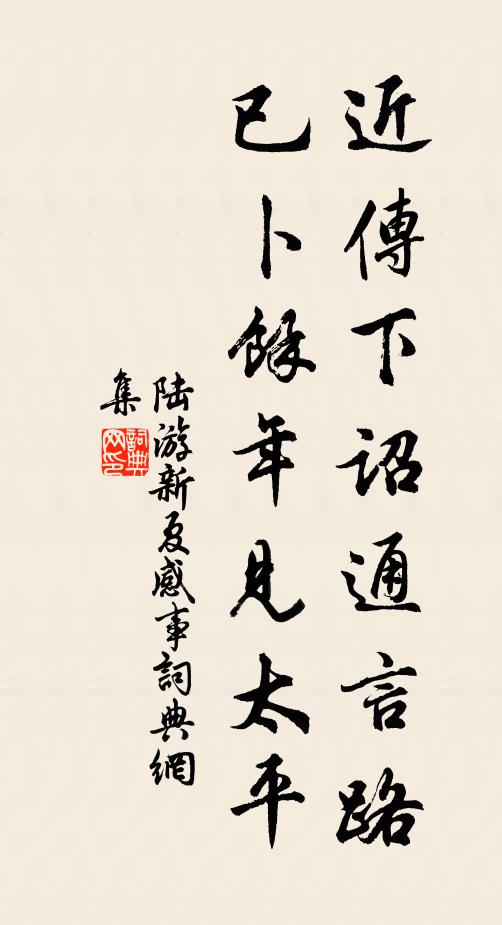 近傳下詔通言路
已卜餘年見太平
陆游新夏感事詞典網
集
詞典
网印